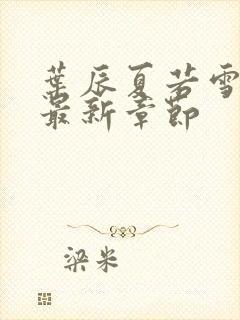 葉辰夏若雪
最新章節
梁米